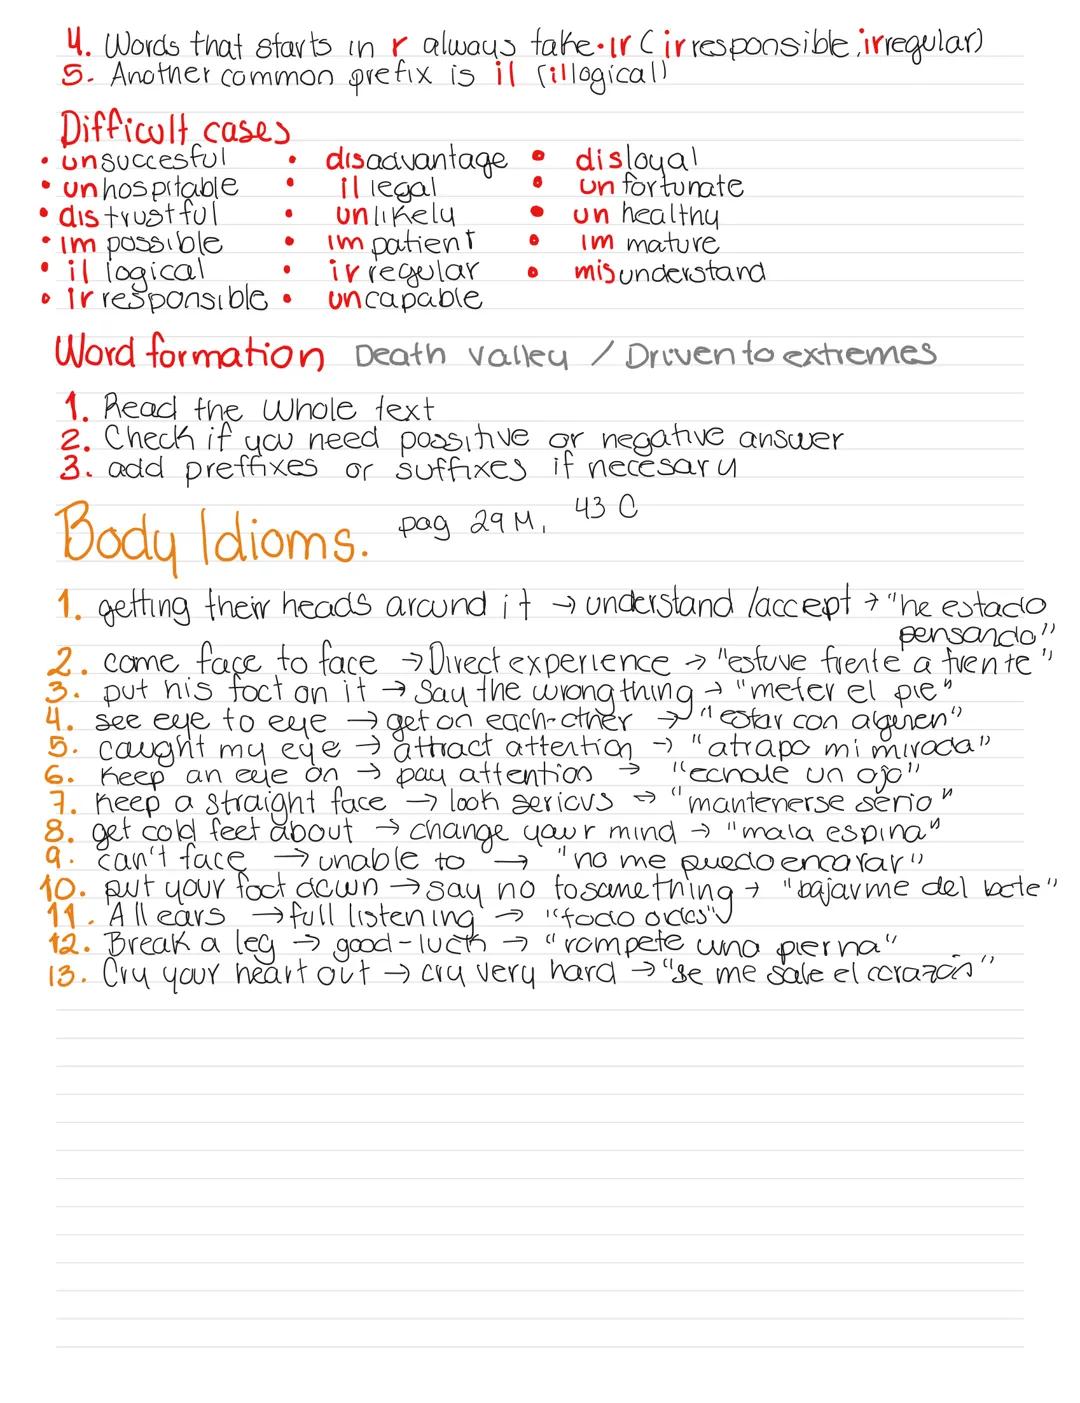 4. Words that starts in r always take ir (irresponsible, irregular)
5. Another common prefix is il (illogical)
Difficult cases
• unsuccesful • disadvantage • disloyal
• unhospitable • illegal • unfortunate
• distrustful • unlikely • unhealthy
• impossible • impatient • immature
• illogical • irregular • misunderstand
• irresponsible • uncapable
Word formation Death Valley / Driven to extremes
1. Read the whole text
2. Check if you need possitive or negative answer
3. add preffixes or suffixes if necesary
Body Idioms. pag 29 M, 43 C
1. getting their heads around it → understand /accept → "he estado
pensando"
2. come face to face → Direct experience → "estuve frente a frente"
3. put his foot on it → Say the wrong thing → "meter el pie"
4. see eye to eye → get on each-other → "estar con alguien"
5. caught my eye → attract attention → "atrapo mi mirada"
6. Keep an eye on → pay attention → "echale un ojo"
7. Keep a straight face → look serious → "mantenerse serio"
8. get cold feet about → change your mind → "mala espina"
9. can't face → unable to → "no me puedo encarar"
10. put your foot down → say no to something → "bajarme del bote"
11. All ears → full listening → "todo oidos"
12. Break a leg → good-luck → "rompete una pierna"
13. Cry your heart out → cry very hard → "se me sale el corazón"